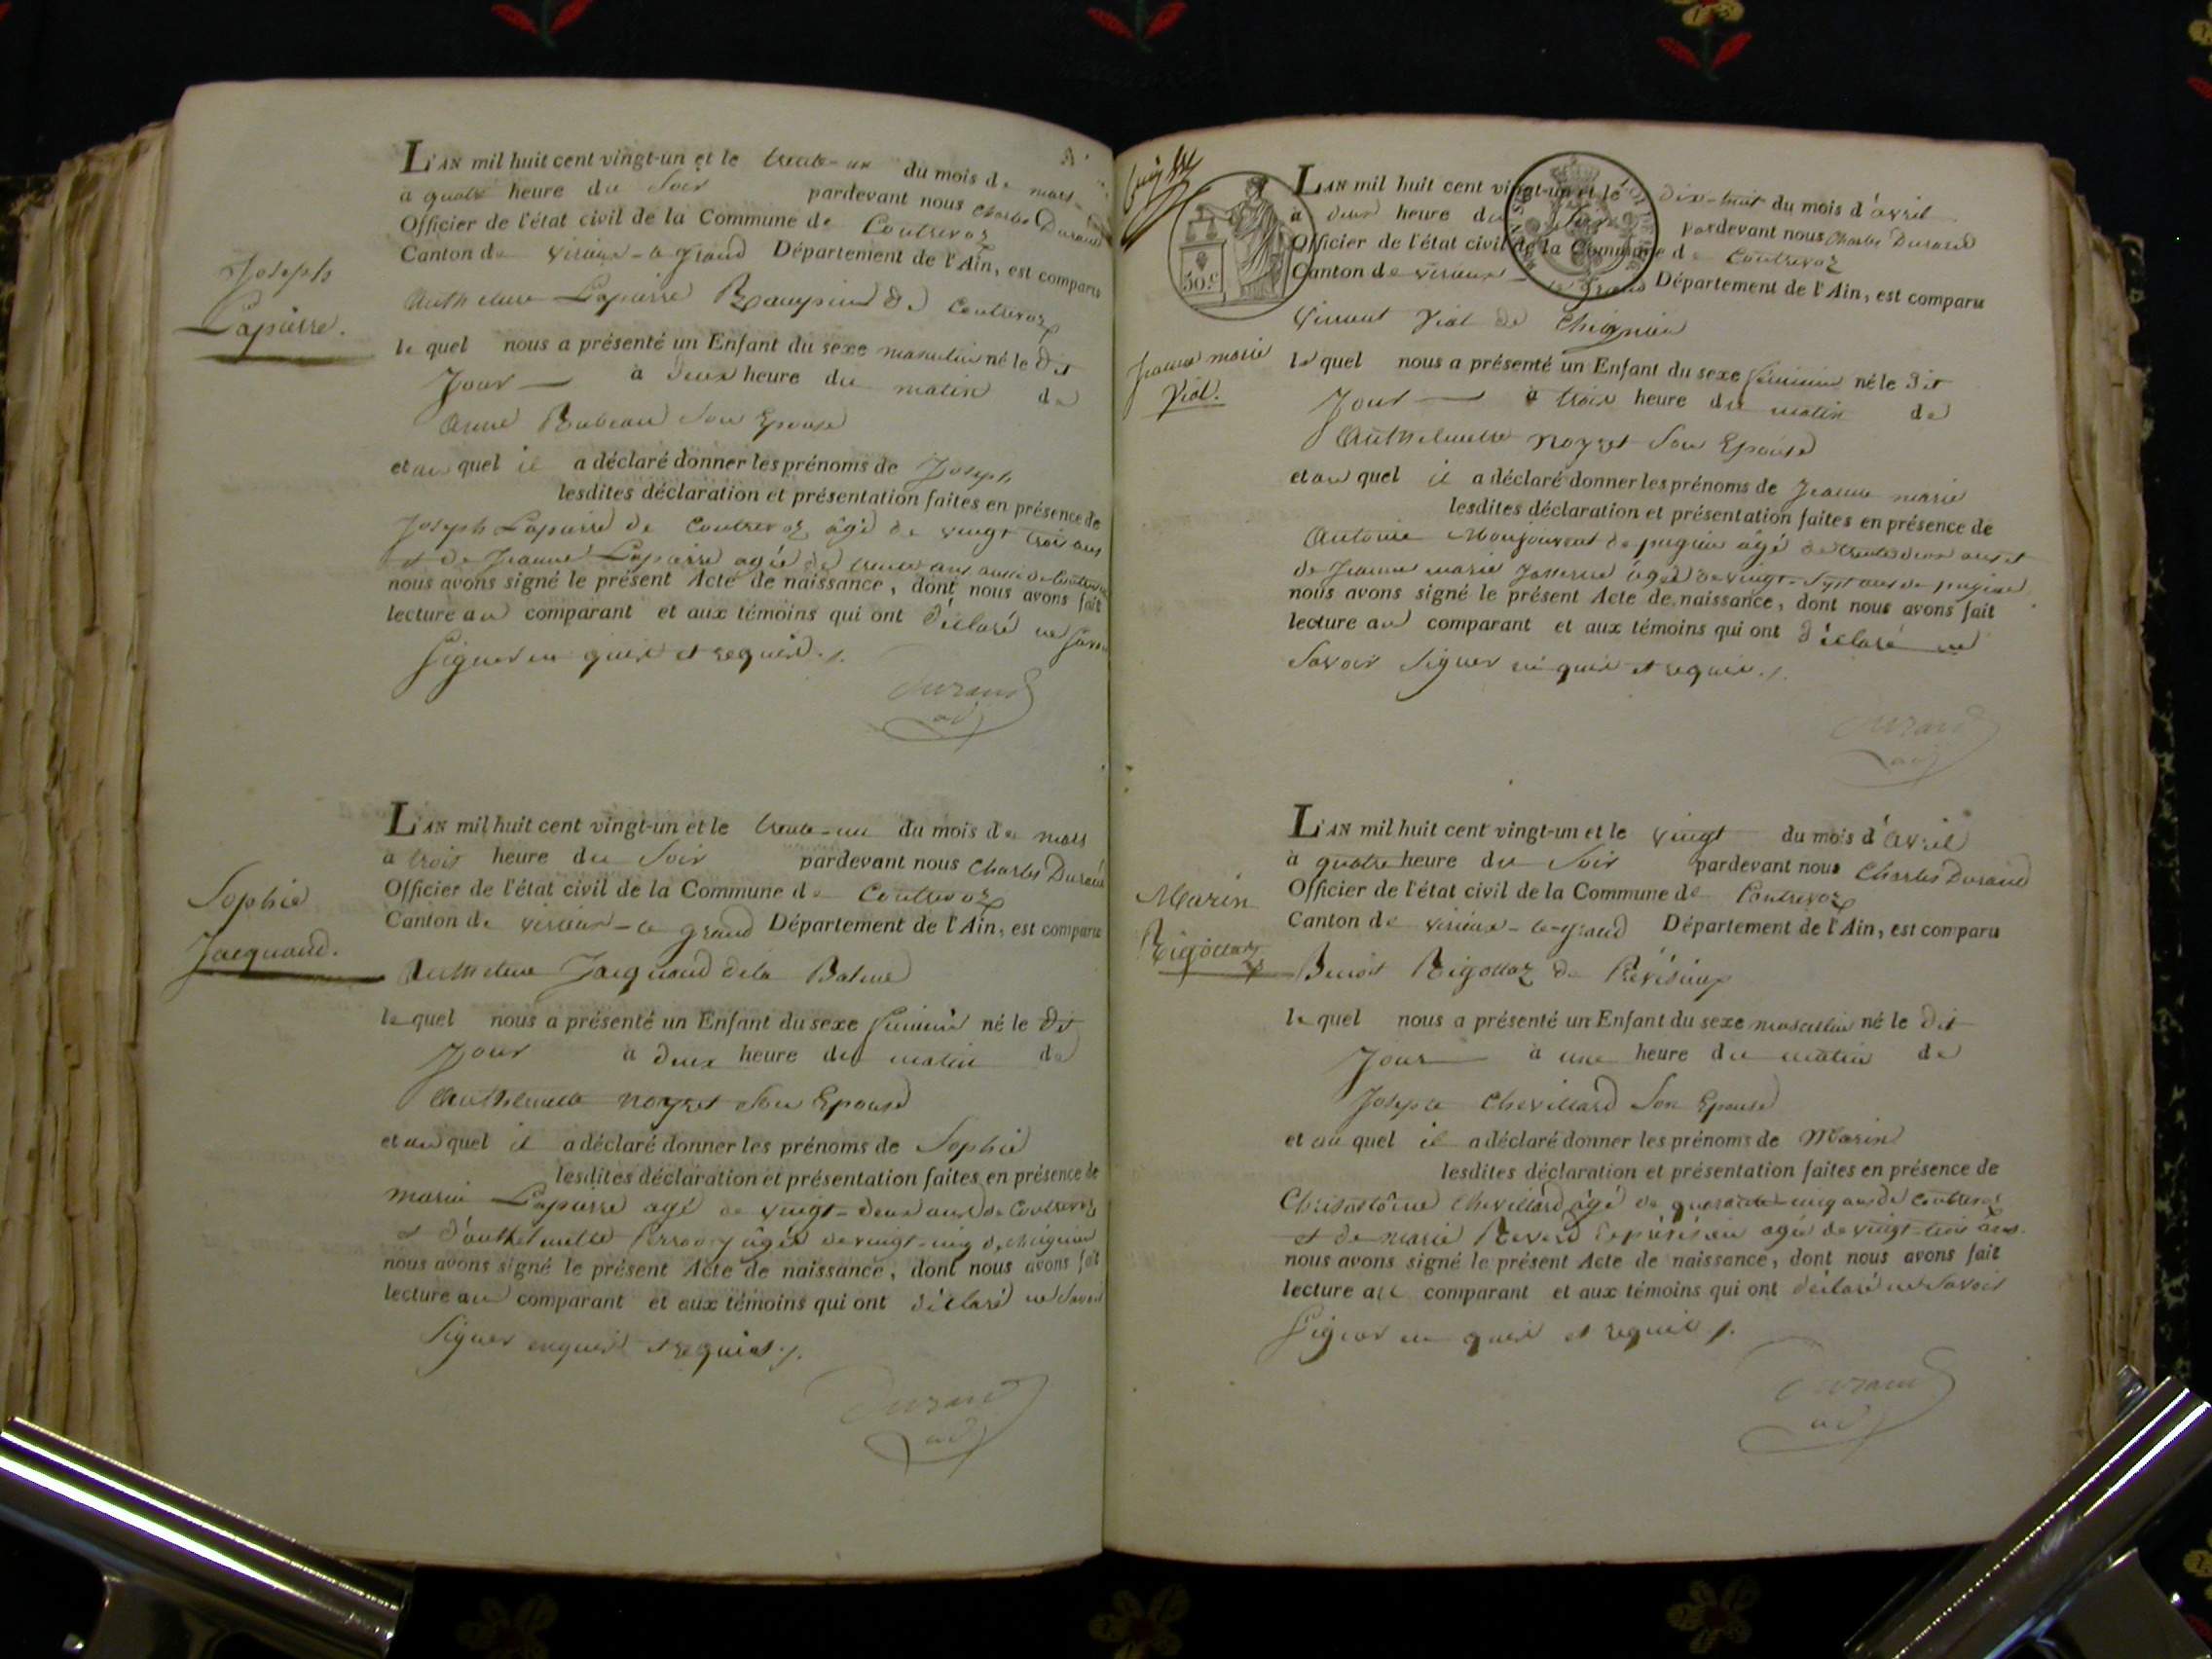 Joseph
Lapierre.
L'AN mil huit cent vingt-un et le trente-un du mois de mars
a quatre heure du Soir pardevant nous Charles Durand
Officier de l'état civil de la Commune de Contrevoz
Canton de virieux-le grand Département de l'Ain, est comparu
Anthelme Lapierre de Contrevoz
le quel nous a présenté un Enfant du sexe masculin né le dit
Jour à deux heure du matin de
Anne Rubeau Son Epouse
et au quel il a déclaré donner les prénoms de Joseph
lesdites déclaration et présentation faites en présence de
Joseph Lapierre de Contrevoz âgé de vingt trois ans
et de Jeanne Lapierre agée de trente ans aussi de Contrevoz
nous avons signé le présent Acte de naissance, dont nous avons fait
lecture au comparant et aux témoins qui ont déclaré ne Savoir
Signer en quis et requis ./.
Durand
adj
Sophie
Jacquand.
L'AN mil huit cent vingt-un et le trente-un du mois de mars
a trois heure du Soir pardevant nous Charles Durand
Officier de l'état civil de la Commune de Contrevoz
Canton de virieux-le grand Département de l'Ain, est comparu
Anthelme Jacquand de la Balme
le quel nous a présenté un Enfant du sexe féminin né le dit
Jour à deux heure du matin de
Anthelmette noyret Son Epouse
et au quel il a déclaré donner les prénoms de Sophie
lesdites déclaration et présentation faites en présence de
marie Lapierre agé de vingt-deux ans de Contrevoz
et d'anthelmette agée de vingt-cinq de cheignieu
nous avons signé le présent Acte de naissance, dont nous avons fait
lecture au comparant et aux témoins qui ont déclaré ne Savoir
Signer enquis et requis ./.
Durand
adj
50.c
L'AN mil huit cent vingt-un et le Dix-huit du mois d'avril
à deux heure du Soir pardevant nous Charles Durand
Officier de l'état civil de la Commune de Contrevoz
Canton de virieux-le grand Département de l'Ain, est comparu
Vincent Viol de Cheignieu
Jeanne marie
Viol.
le quel nous a présenté un Enfant du sexe féminin né le dit
Jour à trois heure du matin de
Anthelmette noyret Son Epouse
et au quel il a déclaré donner les prénoms de Jeanne marie
lesdites déclaration et présentation faites en présence de
Antoine Monjouvent de pugieu âgé de trente deux ans et
de Jeanne marie agée de vingt-sept ans de pugieu
nous avons signé le présent Acte de naissance, dont nous avons fait
lecture au comparant et aux témoins qui ont déclaré ne
Savoir Signer en quis et requis ./.
Durand
adj
Marin
Rigollaz
L'AN mil huit cent vingt-un et le vingt du mois d'avril
à quatre heure du Soir pardevant nous Charles Durand
Officier de l'état civil de la Commune de Contrevoz
Canton de virieux-le-grand Département de l'Ain, est comparu
Benoit Rigollaz de Prévésieux
le quel nous a présenté un Enfant du sexe masculin né le dit
Jour à une heure du matin de
Josepte Chevillard Son Epouse
et au quel il a déclaré donner les prénoms de Marin
lesdites déclaration et présentation faites en présence de
Chrisostôme Chevillard âgé de quarante-cinq ans de Contrevoz
et de marie agée de vingt-trois ans.
nous avons signé le présent Acte de naissance, dont nous avons fait
lecture au comparant et aux témoins qui ont déclaré ne Savoir
Signer en quis et requis ./.
Durand
adj